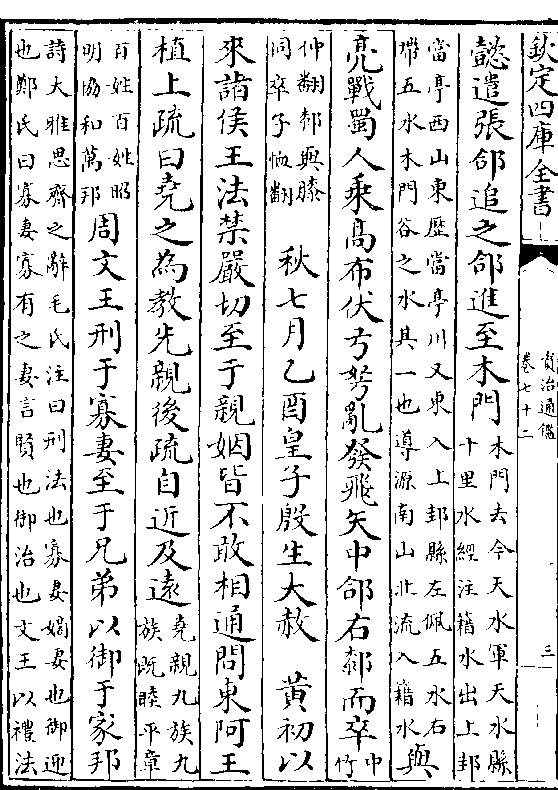 欽定四庫全書
資治通鑑
卷七十二
三
懿遣張郃追之郃進至木門木門去今天水軍天水縣
十里水經注籍水出上邽
當亭西山東歷當亭川又東入上邽縣左佩五水右
帶五水木門谷之水其一也導源南山北流入籍水與
亮戰蜀人乗髙布伏弓弩亂發飛矢中郃右䣛而卒中
竹
仲翻䣛與膝
同卒子恤翻秋七月乙酉皇子殷生大赦 黄初以
來諸侯王法禁嚴切至于親姻皆不敢相通問東阿王
植上疏曰堯之為教先親後疏自近及逺堯親九族九
族既睦平章
百姓百姓昭
明協和萬邦周文王刑于寡妻至于兄弟以御于家邦
詩大雅思齊之辭毛氏注曰刑法也寡妻嫡妻也御迎
也鄭氏曰寡妻寡有之妻言賢也御治也文王以禮法